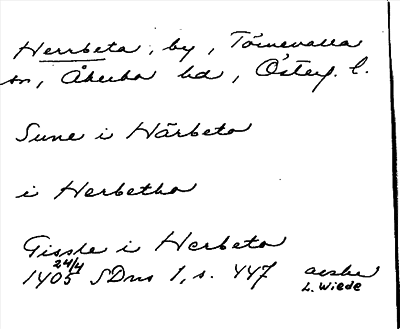 Herrbeta, by, Törnevalla
sn, Åkerbo hd, Österg. l.
Sune i Härbeto
i Herbetho
Gissle i Herbeto
24/4
1405 SDns 1, s. 447 avskr
L. Wiede